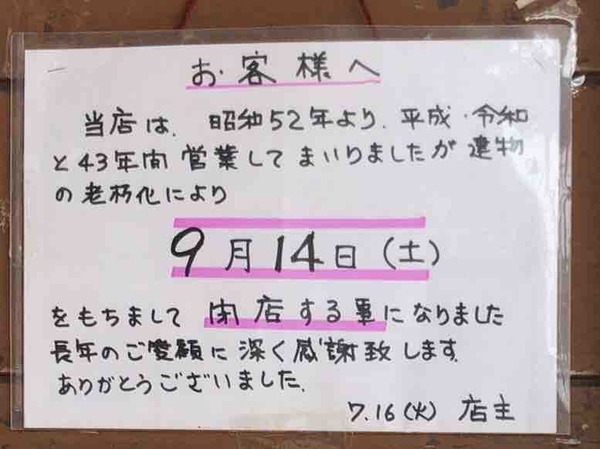 お客様へ
当店は、昭和52年より、平成・令和
と43年間営業してまいりましたが建物
の老朽化により
9月14日(土)
をもちまして閉店する事になりました
長年のご愛顧に深く感謝致します。
ありがとうございました。
7.16(火) 店主